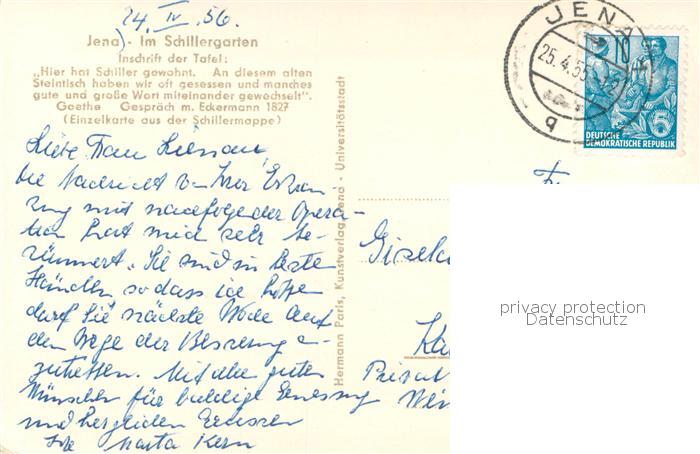 24. IV. 56.
Jena - Im Schillergarten
Inschrift der Tafel:
„Hier hat Schiller gewohnt. An diesem alten
Steintisch haben wir oft gesessen und manches
gute und große Wort miteinander gewechselt".
Goethe Gespräch m. Eckermann 1827
(Einzelkarte aus der Schillermappe)
Liebe Frau
die Nachricht von Ihrer Erkran-
kung mit nachfolgender Opera-
tion hat mich sehr be-
kümmert. Sie sind in beste
Händen, so dass ich hoffe
darf Sie nächste Woche auf
dem Wege der Besserung an-
zutreffen. Mit allen guten
Wünschen für baldige Genesung
und herzlichen Grüssen
Ihre Marta Kern
Hermann Paris, Kunstverlag Jena - Universitätsstadt
JENA
25.4.56
9
10
5
DEUTSCHE
DEMOKRATISCHE REPUBLIK
Gisela
Privat
privacy protection
Datenschutz